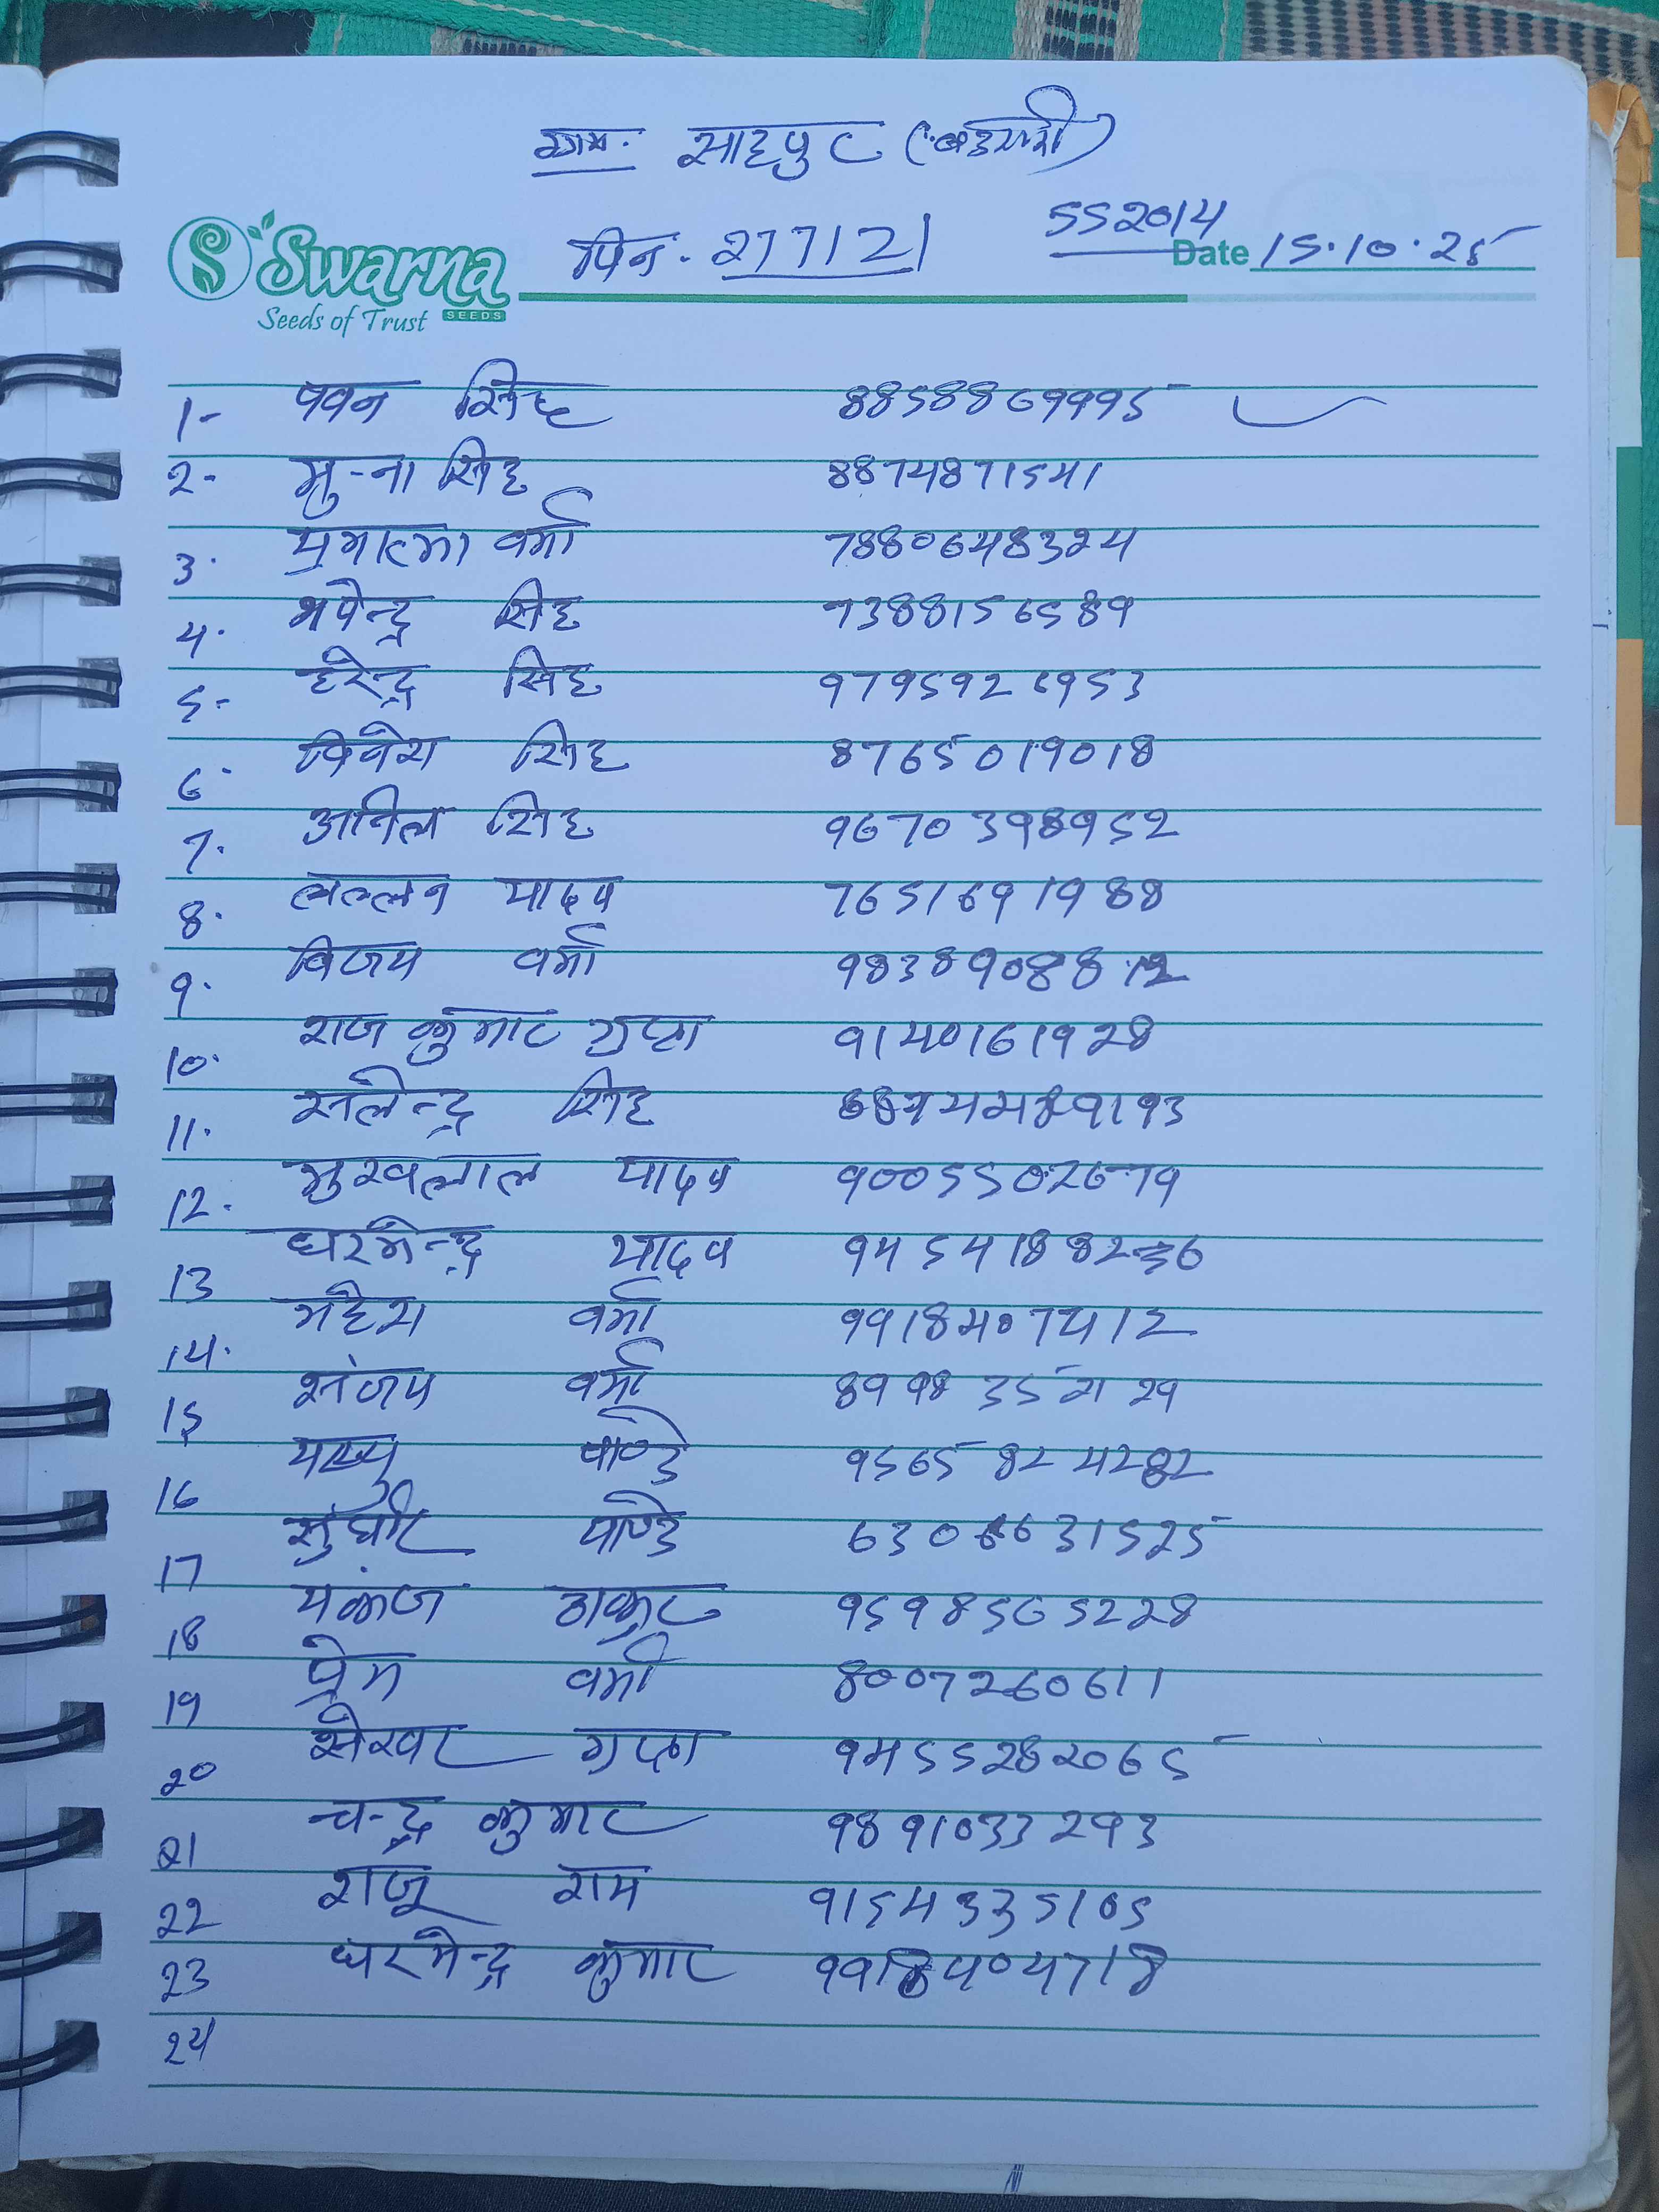 ग्राम. साहपुर
Swarna
Seeds of Trust SEEDS
पिन. 277121
SS2014
Date 15.10.25
1- पवन सिंह 8858869995
2- मुन्ना सिंह 8874871541
3. वर्मा 7880648324
4. भूपेन्द्र सिंह 7388156589
5- हरेन्द्र सिंह 9795926953
6. सिंह 8765019018
7. अनिल सिंह 9670398952
8. लल्लन यादव 7651691988
9. विजय वर्मा 9838908812
10. राज कुमार गुप्ता 9140161928
11. सिंह
12. मुखलाल यादव 9005502679
13 धरमेन्द्र यादव
14. महेश वर्मा 9918407412
15 संजय वर्मा
16 पाण्डे 9565824282
17 सुधीर पाण्डे
18 पंकज ठाकुर 9598565228
19 प्रेम वर्मा 8007260611
20 सेखर गुप्ता 9455282065
21 चन्द्र कुमार 9891033293
22 राजू राम 9154335105
23 धरमेन्द्र कुमार 9918404718
24